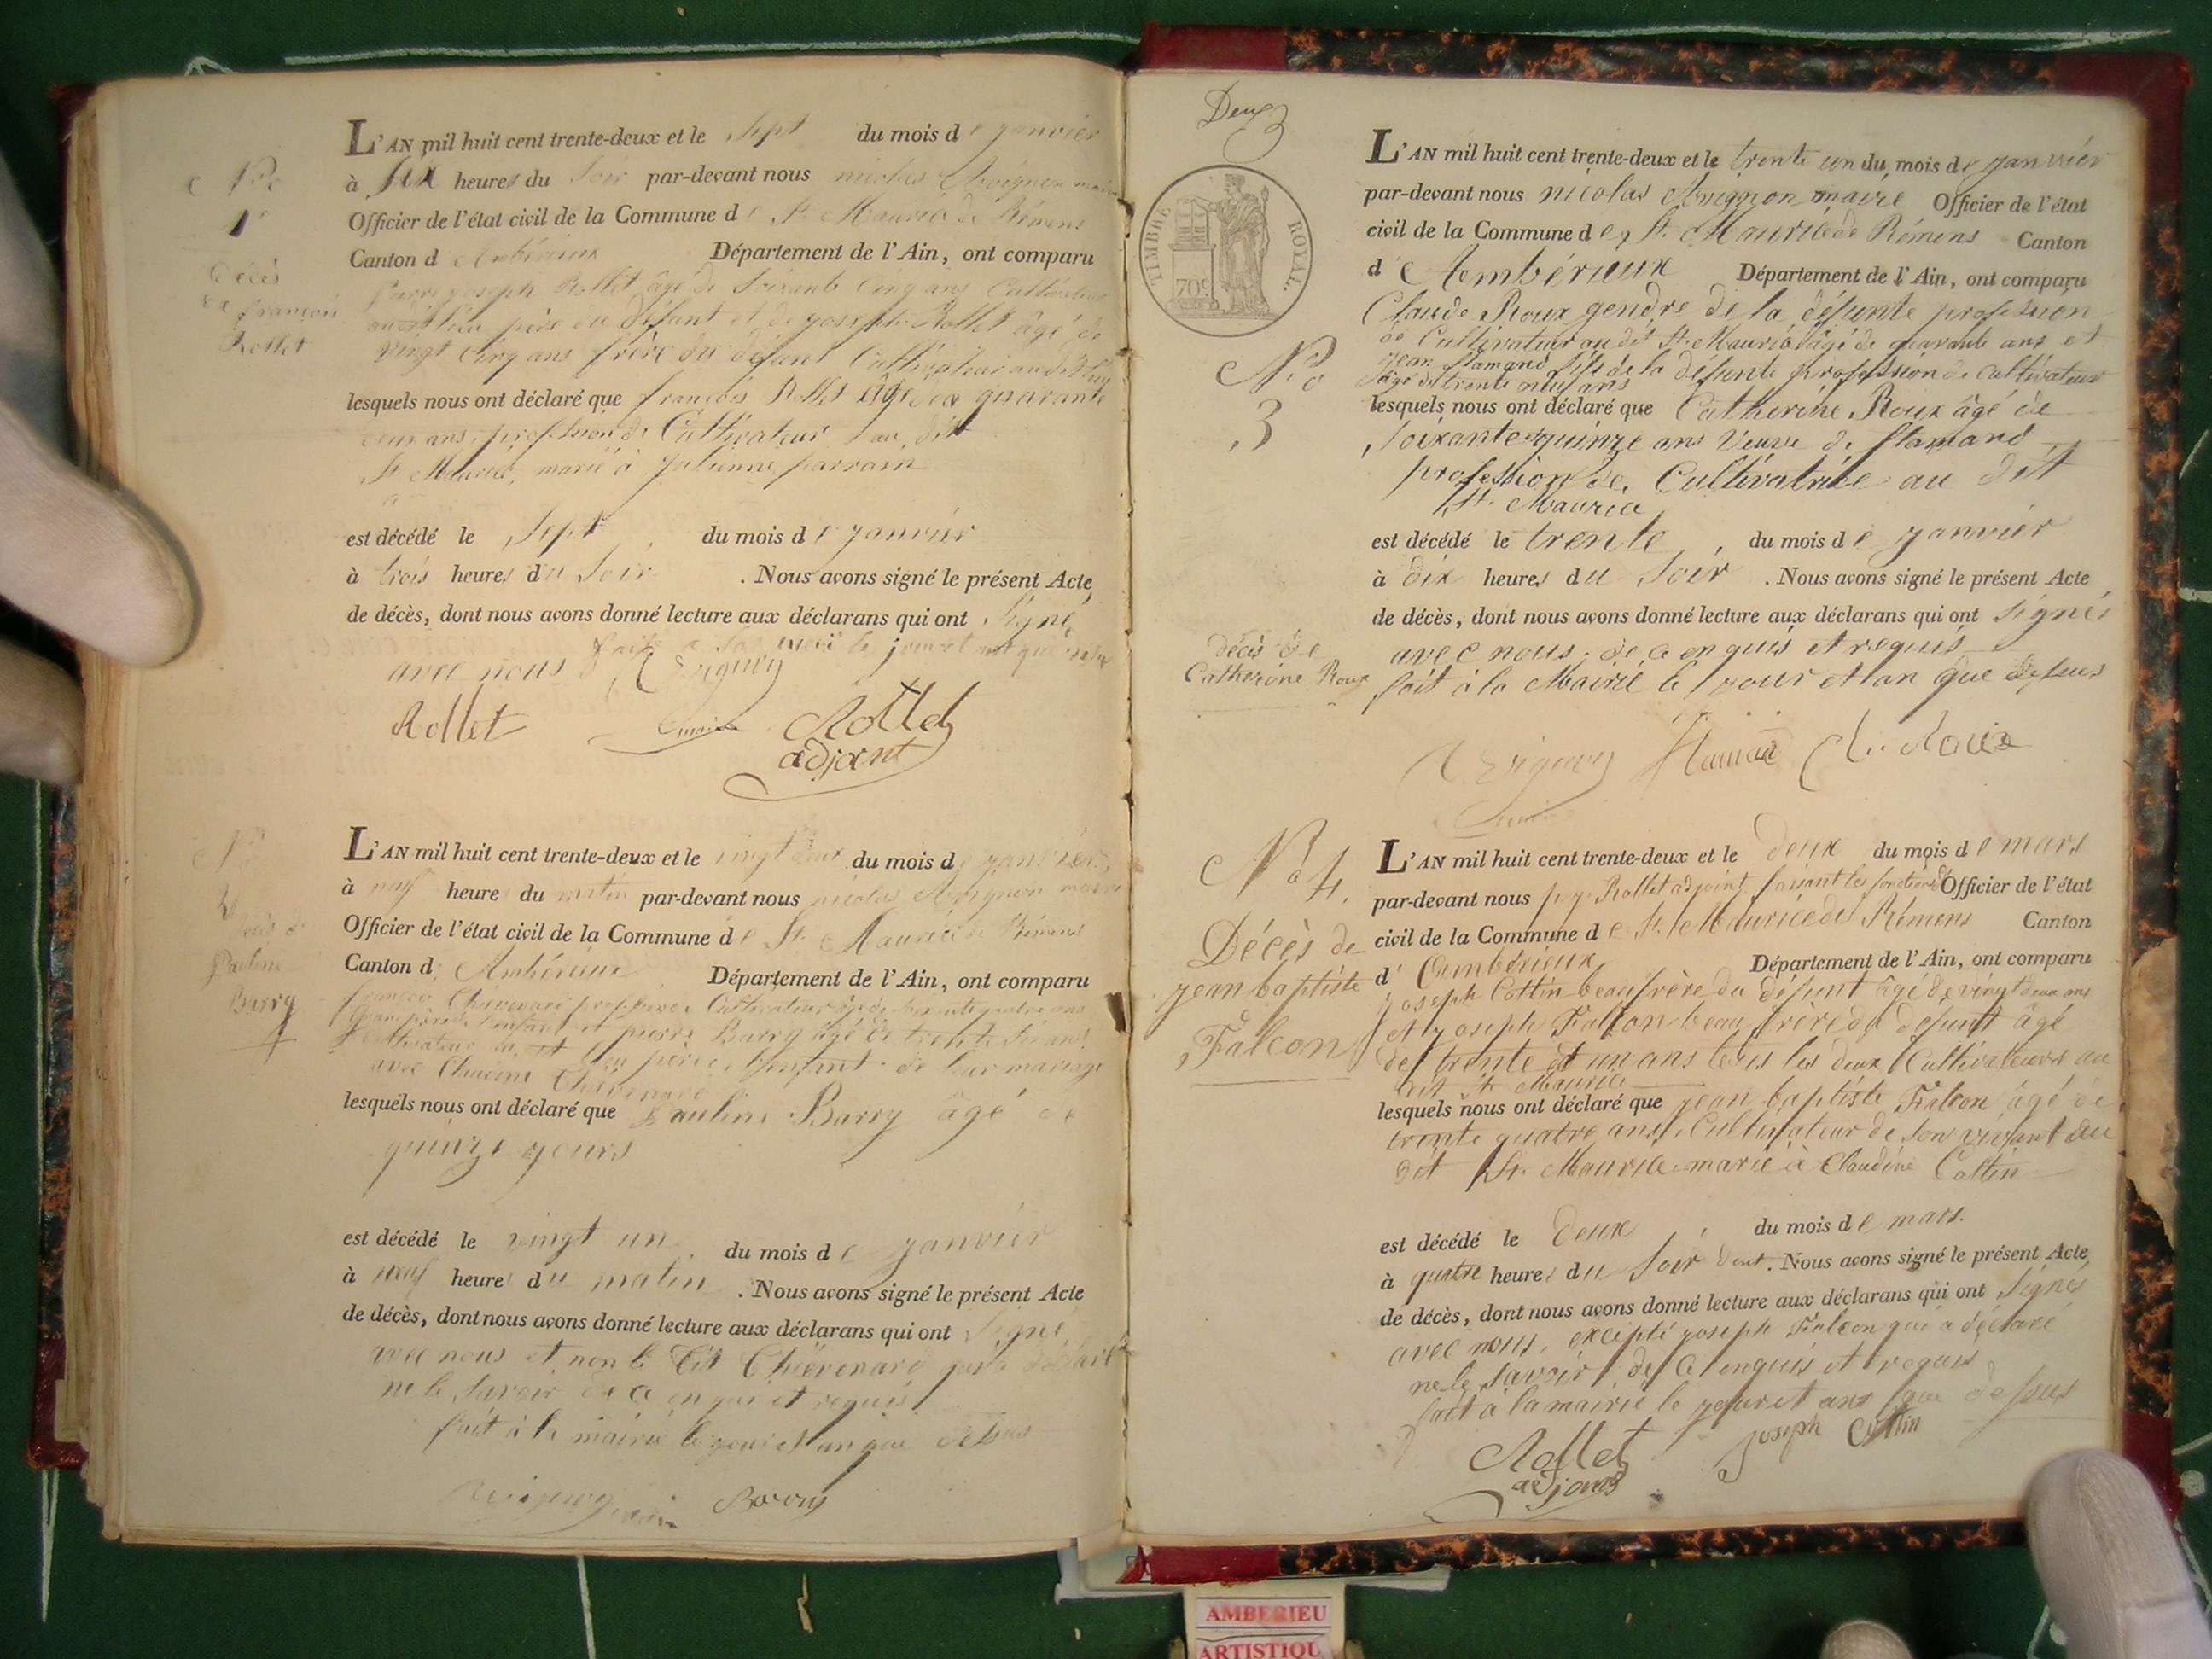 N.o
1er
Décès
de françois
Rollet
L'AN mil huit cent trente-deux et le Sept du mois de janvier
à Six heures du Soir par-devant nous nicolas Avignon maire
Officier de l'état civil de la Commune de St. Maurice de Rémens
Canton d Ambérieux Département de l'Ain, ont comparu
pierre joseph Rollet âgé de Soixante Cinq ans Cultivateur
au dit lieu père du défunt et de joseph Rollet âgé de
vingt Cinq ans frère du défunt Cultivateur au dit lieu
lesquels nous ont déclaré que françois Rollet âgé de quarante
ans, profession de Cultivateur au dit
St Maurice, marié à julienne parrain
est décédé le Sept du mois de janvier
à trois heures du Soir. Nous avons signé le présent Acte
de décès, dont nous avons donné lecture aux déclarans qui ont Signé
avec nous faite a la mairie le jour et an que
Rollet maire Rollet
adjoint
N.o
Décès de
Pauline
Barry
L'AN mil huit cent trente-deux et le vingt deux du mois de janvier
à neuf heures du matin par-devant nous nicolas Avignon maire
Officier de l'état civil de la Commune de St. Maurice de Rémens
Canton d Ambérieux Département de l'Ain, ont comparu
françois Chévenard profession Cultivateur âgé de Soixante quatre ans
grand père de l'enfant et pierre Barry âgé de trente Six ans
Cultivateur au dit lieu père de l'enfant de leur mariage
avec Claudine Chévenard
lesquels nous ont déclaré que Pauline Barry âgé de
quinze jours
est décédé le vingt un du mois de janvier
à neuf heures du matin. Nous avons signé le présent Acte
de décès, dont nous avons donné lecture aux déclarans qui ont Signé
avec nous et non le dit Chévenard qui a déclaré
ne le Savoir de ce enquis et requis
fait à la mairie le jour et an que dessus
maire Barry
Deux
TIMBRE ROYAL.
70c
N.o
3
décès de
Catherine Roux
L'AN mil huit cent trente-deux et le trente un du mois de janvier
par-devant nous nicolas Avignon maire Officier de l'état
civil de la Commune de St. Maurice de Rémens Canton
d' Ambérieux Département de l'Ain, ont comparu
Claude Roux gendre de la défunte profession
de Cultivateur au dit St. Maurice âgé de quarante ans et
jean flamand fils de la défunte profession de cultivateur
âgé de trente neuf ans
lesquels nous ont déclaré que Catherine Roux âgé de
Soixante quinze ans Veuve de flamand
profession de Cultivatrice au dit
St. Maurice
est décédé le trente du mois de janvier
à dix heures du Soir. Nous avons signé le présent Acte
de décès, dont nous avons donné lecture aux déclarans qui ont Signés
avec nous; de ce enquis et requis
fait à la Mairie le jour et an que dessus
Cl. Roux
N.o 4.
Décès de
jean baptiste
Falcon
L'AN mil huit cent trente-deux et le deux du mois de mars
par-devant nous p. j. Rollet adjoint faisant les fonctions d' Officier de l'état
civil de la Commune de St. Maurice de Rémens Canton
d' Ambérieux Département de l'Ain, ont comparu
joseph Cottin beau frère du défunt âgé de vingt deux ans
et joseph Falcon beau frère du défunt âgé
de trente et un ans tous les deux Cultivateurs au
dit St Maurice
lesquels nous ont déclaré que jean baptiste Falcon âgé de
trente quatre ans, Cultivateur de Son vivant au
dit St. Maurice marié à Claudine Cottin
est décédé le deux du mois de mars.
à quatre heures du Soir dont. Nous avons signé le présent Acte
de décès, dont nous avons donné lecture aux déclarans qui ont Signés
avec nous, excepté joseph Falcon qui a déclaré
ne le Savoir, de ce enquis et requis
fait à la mairie le jour et an que dessus
Rollet joseph Cottin
adjoint
AMBERIEU
ARTISTIQU